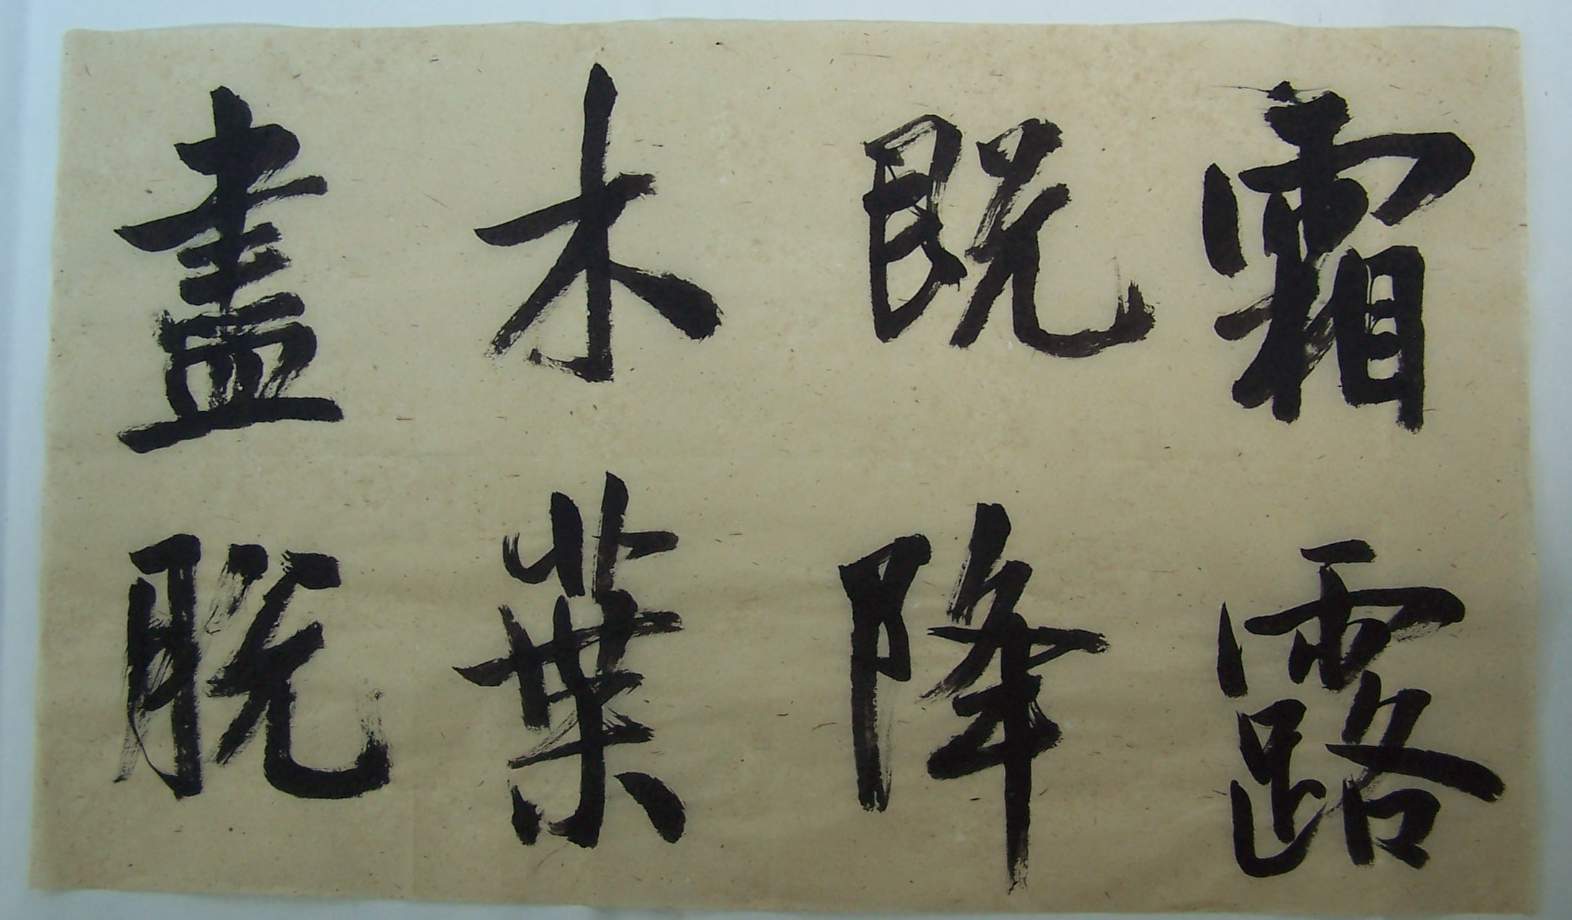 霜露
既降
木葉
盡脫